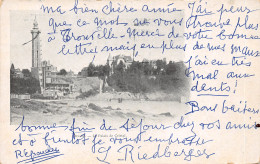 ma bien chère amie J'ai peur
que ce mot ne vous trouve plus
à Trouville - Merci de votre bonne
lettre mais en plus de mes maux
J'ai eu très
mal aux
dents!
Bons baisers
bonne fin de séjour chez vos amis
et à bientôt je vous embrasse
Répondu
G Riedberger